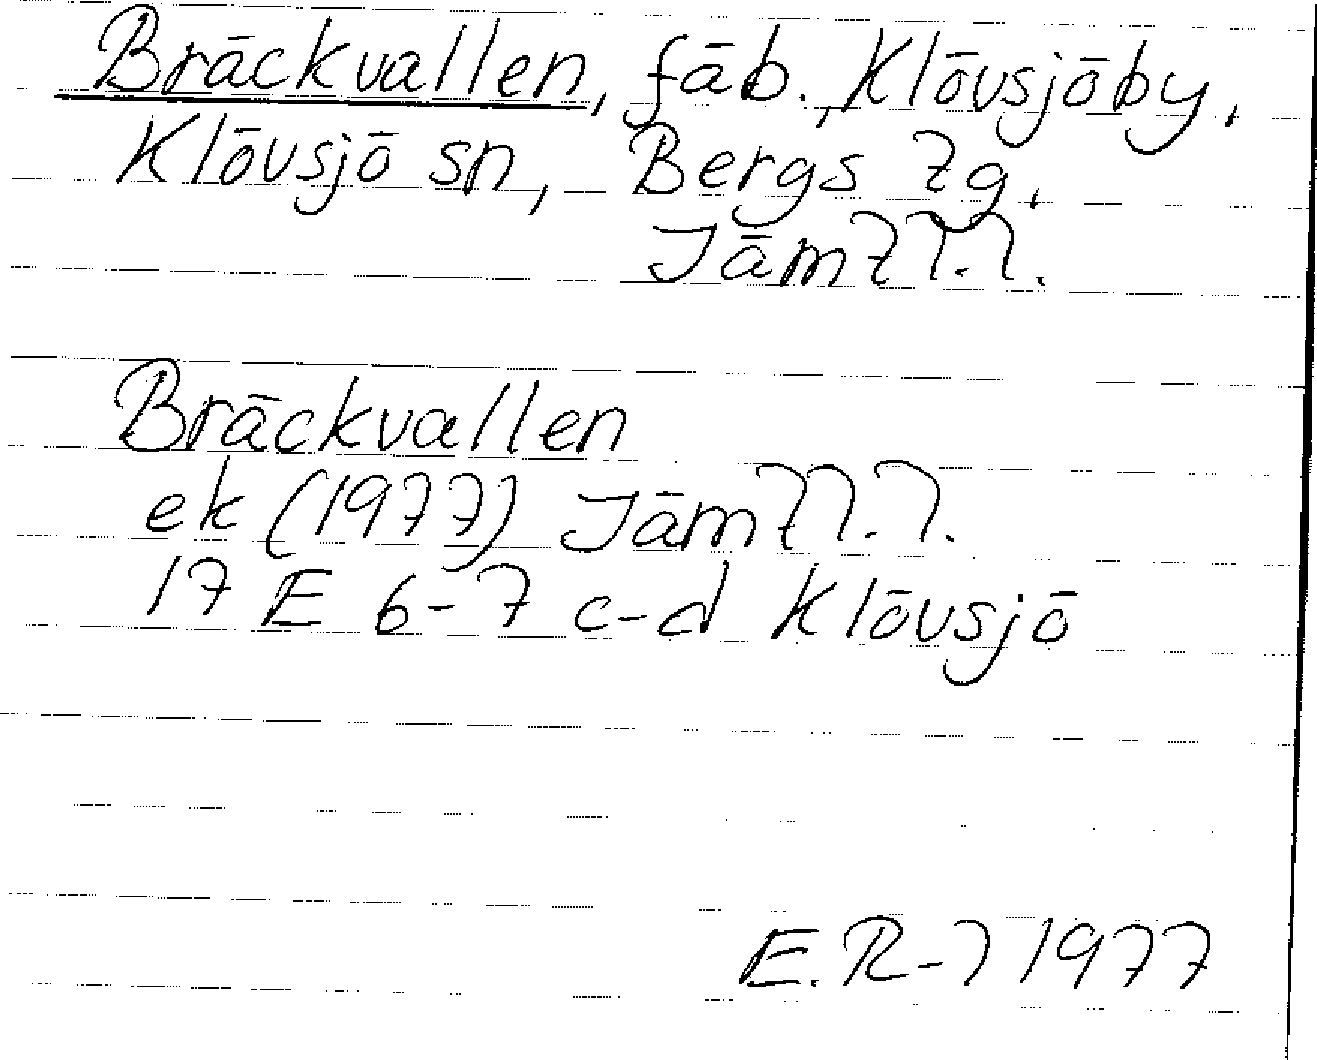 Bräckvallen, fäb., Klövsjöby,
Klövsjö sn, Bergs tg,
Jämtl.l.
Bräckvallen
ek (1977) Jämtl.l.
17 E 6-7 c-d Klövsjö
E.R-l 1977